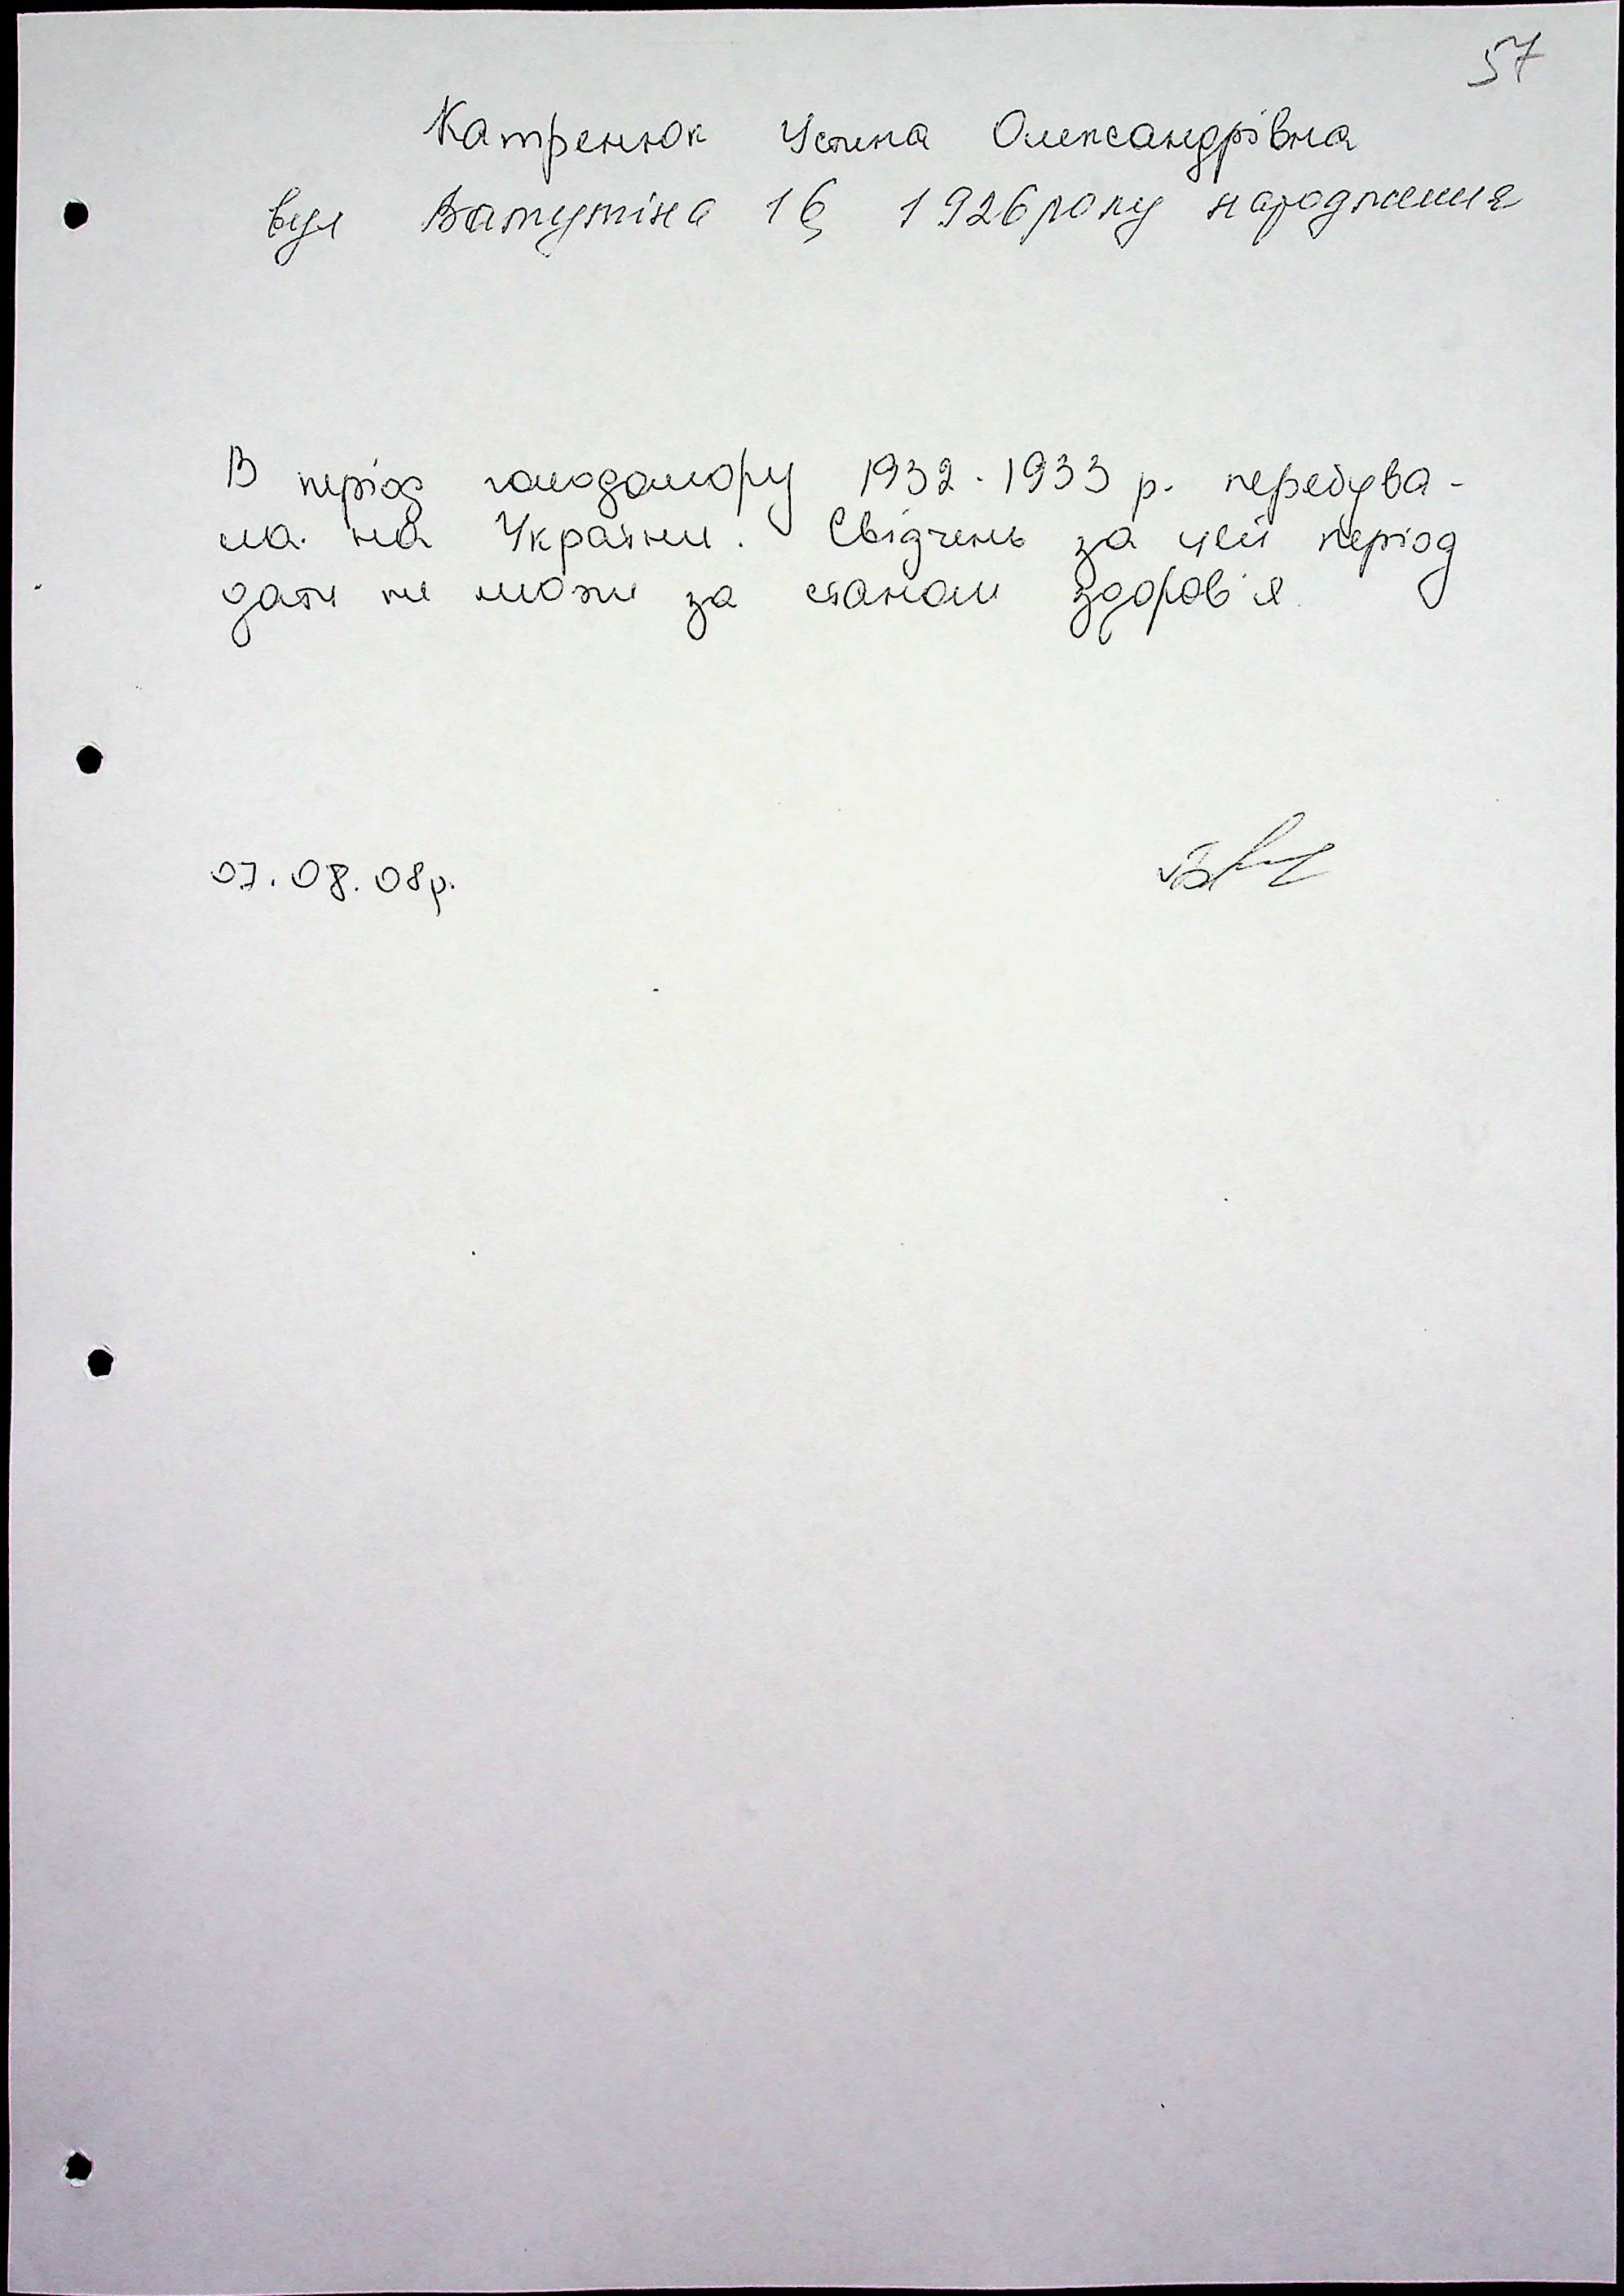 57
Катренюк Устина Олександрівна
вул Ватутіна 16, 1926 року народження
В період голодомору 1932-1933 р. перебува-
ла на Україні. Свідчень за цей період
дати не може за станом здоров'я.
07.08.08р.